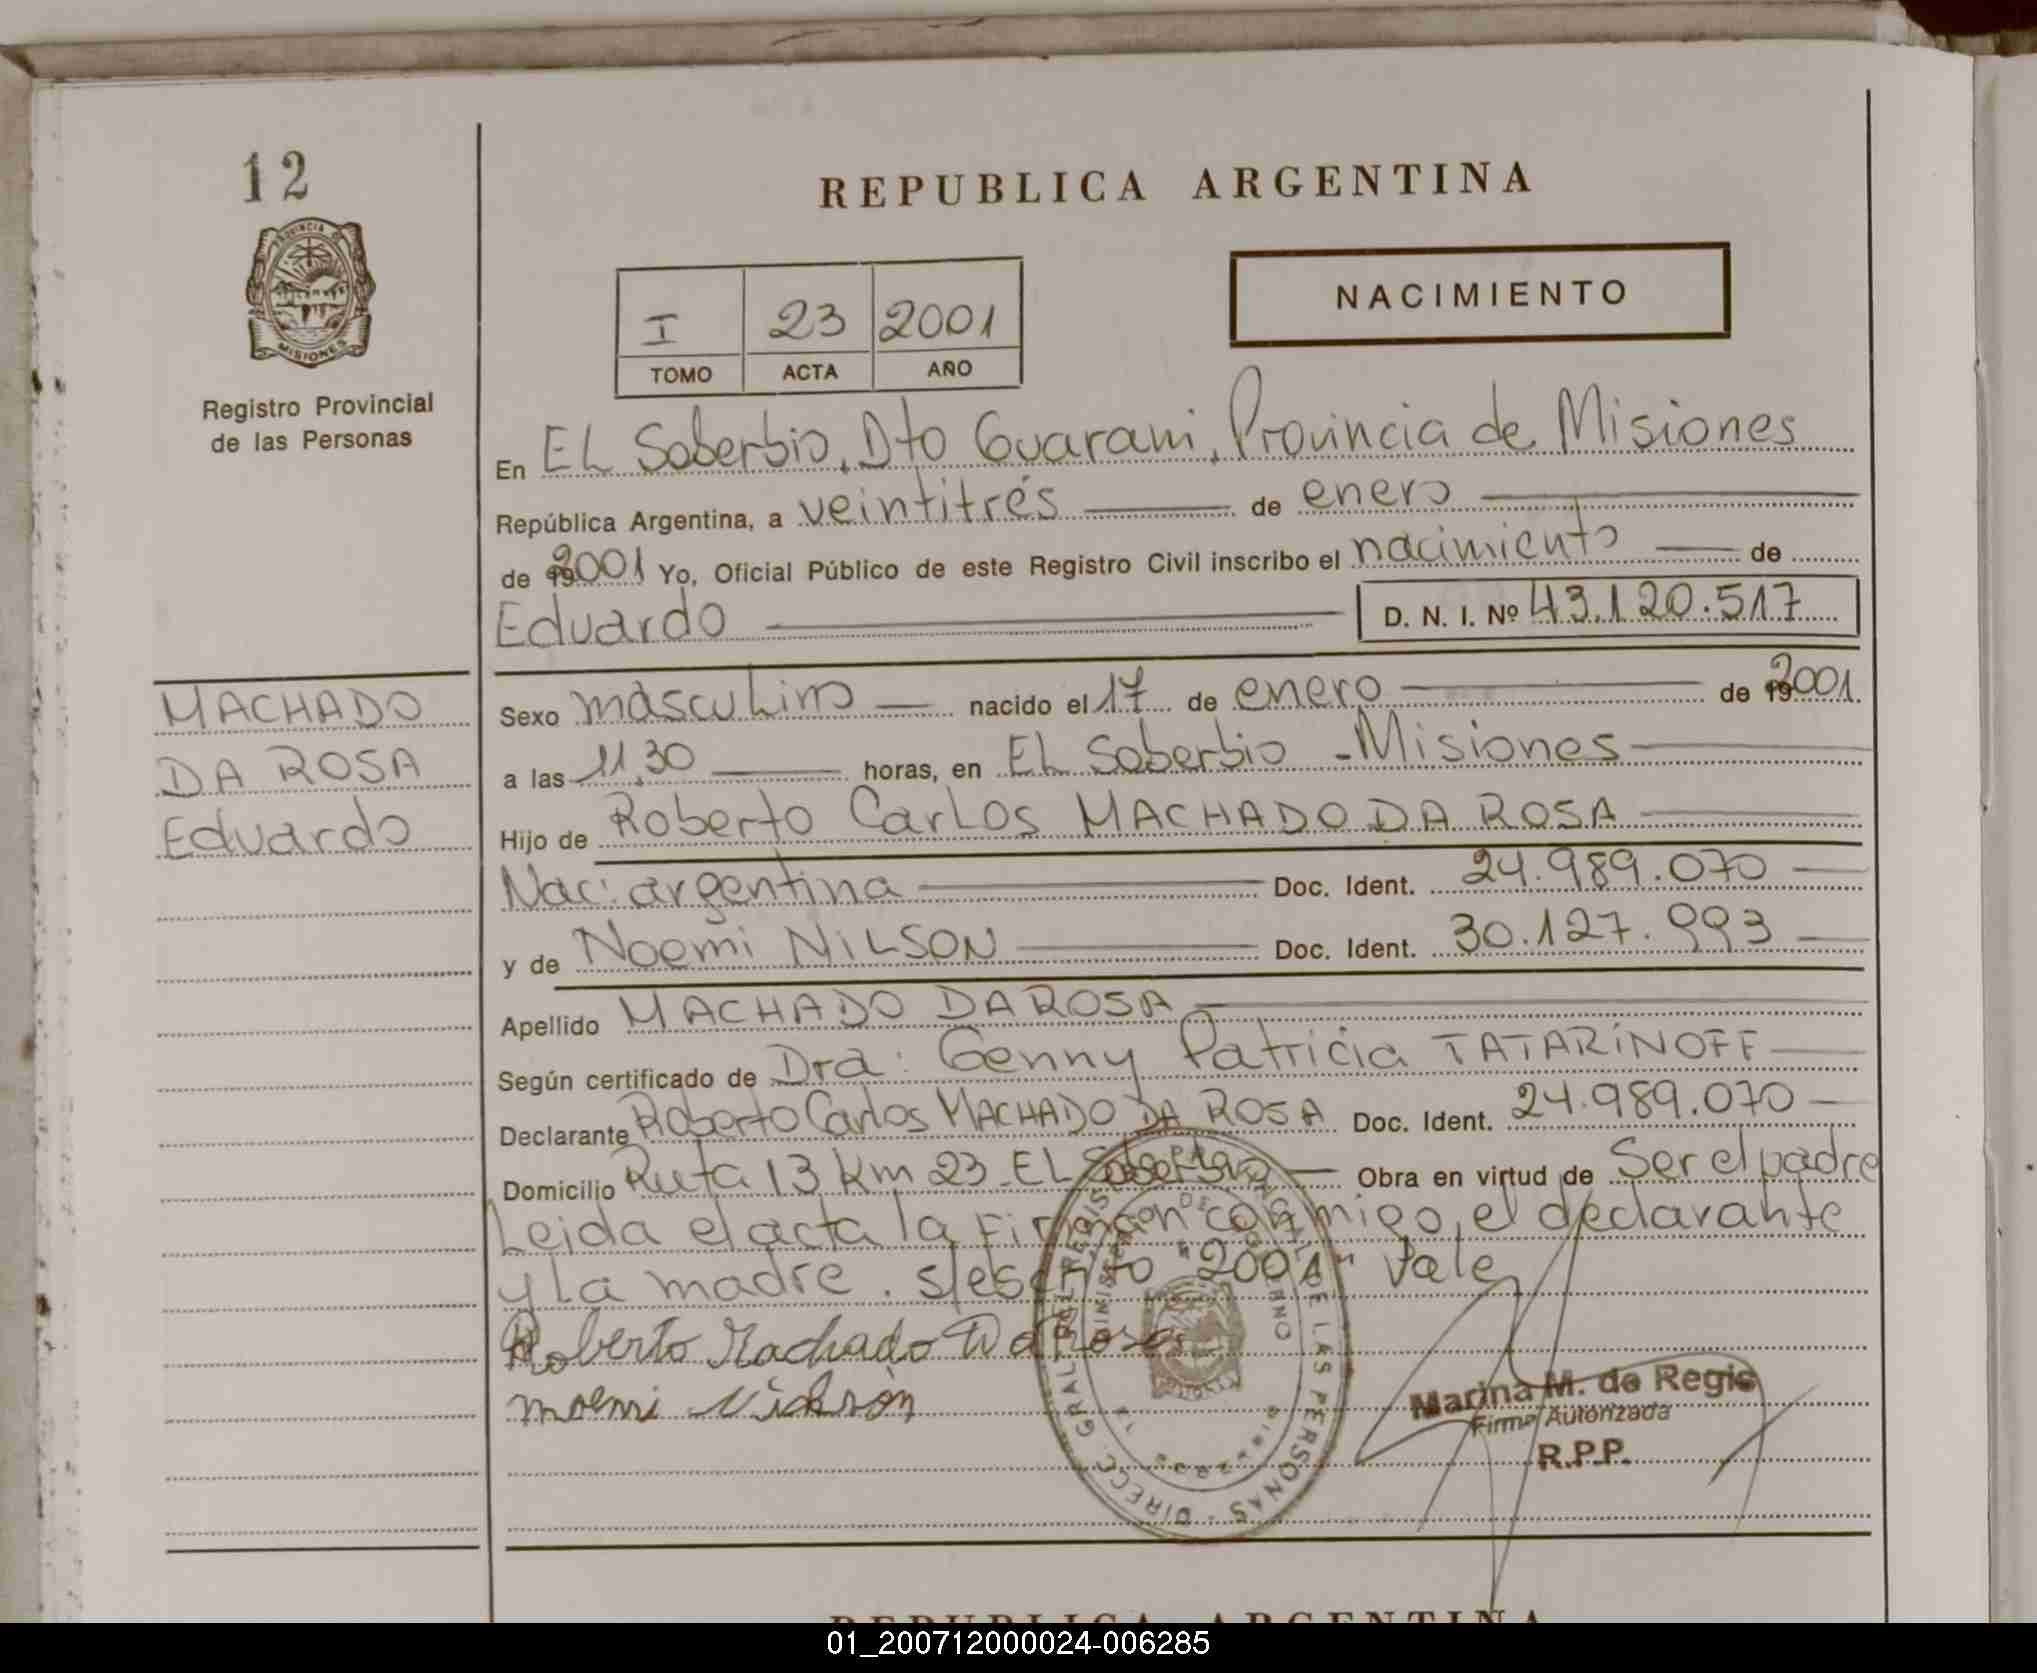 12
PROVINCIA DE
MISIONES
Registro Provincial
de las Personas
REPUBLICA ARGENTINA
I 23 2001
TOMO ACTA AÑO
NACIMIENTO
En EL Soberbio, Dto Guarani, Provincia de Misiones
República Argentina, a veintitrés de enero
de 2001 Yo, Oficial Público de este Registro Civil inscribo el nacimiento de
Eduardo D. N. I. Nº 43.120.517
MACHADO
DA ROSA
Eduardo
Sexo masculino nacido el 17 de enero de 2001
a las 11,30 horas, en EL Soberbio - Misiones
Hijo de Roberto Carlos MACHADO DA ROSA
Nac: argentina Doc. Ident. 24.989.070
y de Noemi NILSON Doc. Ident. 30.127.993
Apellido MACHADO DA ROSA
Según certificado de Dra: Genny Patricia TATARINOFF
Declarante Roberto Carlos MACHADO DA ROSA Doc. Ident. 24.989.070
Domicilio Ruta 13 Km 23 - EL Soberbio Obra en virtud de Ser el padre
Leida el acta la Firman conmigo, el declarante
y La madre. s/escrito "2001" Vale
Roberto Machado Da Rosa
DIRECC. GRAL. DE REGISTRO PROVINCIAL DE LAS PERSONAS
MINISTERIO DE GOBIERNO
Marina M. de Regis
Firma Autorizada
R.P.P.
REPUBLICA ARGENTINA
01_200712000024-006285